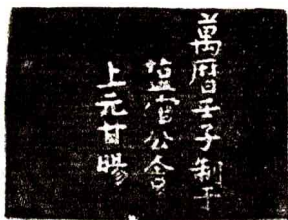 萬曆壬子制于
盐官公舍
上元甘暘